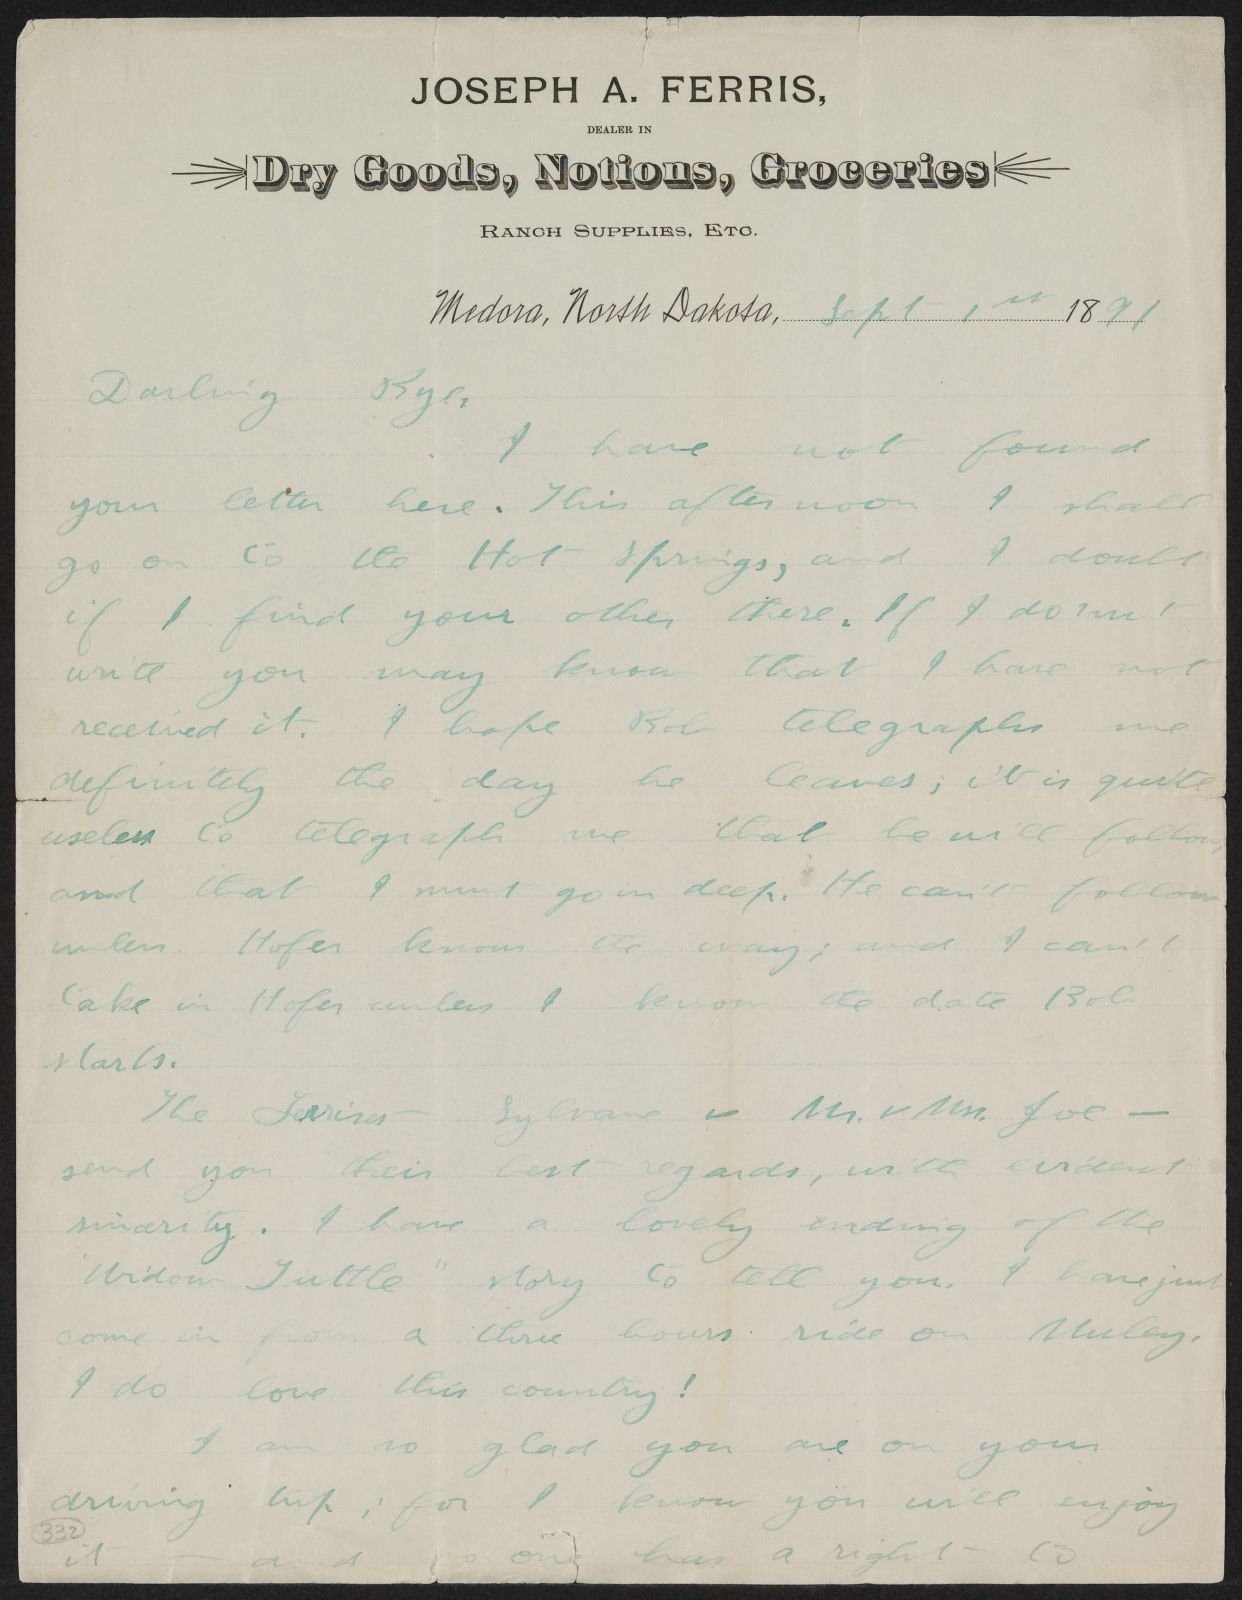 JOSEPH A. FERRIS,
DEALER IN
Dry Goods, Notions, Groceries
RANCH SUPPLIES, ETC.
Medora, North Dakota, Sept 1st 1891
Darling Bye,
I have not found
your letter here. This afternoon I shall
go on to the Hot Springs, and I doubt
if I find your other there. If I do'nt
write you may know that I have not
received it. I hope Bob telegraphs me
definitely the day he leaves; it is quite
useless to telegraph me that he will follow,
and that I must go in deep. He can't follow
unless Hofer knows the way; and I can't
take in Hofer unless I know the date Bob
starts.
The Ferrises - Sylvane & Mr. & Mrs. Joe —
send you their best regards, with evident
sincerity. I have a lovely ending of the
"Widow Tuttle" story to tell you. I have just
come in from a three hours ride on Muley.
I do love this country!
I am so glad you are on your
driving trip; for I know you will enjoy
it — and no one has a right to
332